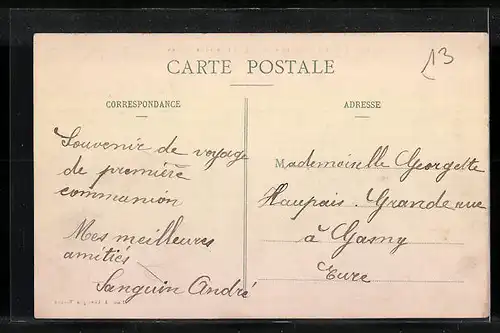 13
CARTE POSTALE
CORRESPONDANCE
Souvenir de voyage
de première
communion
Mes meilleures
amitiés
Sanguin André
ADRESSE
Mademoiselle Georgette
Haupais. Grande rue
à Gasny
Eure